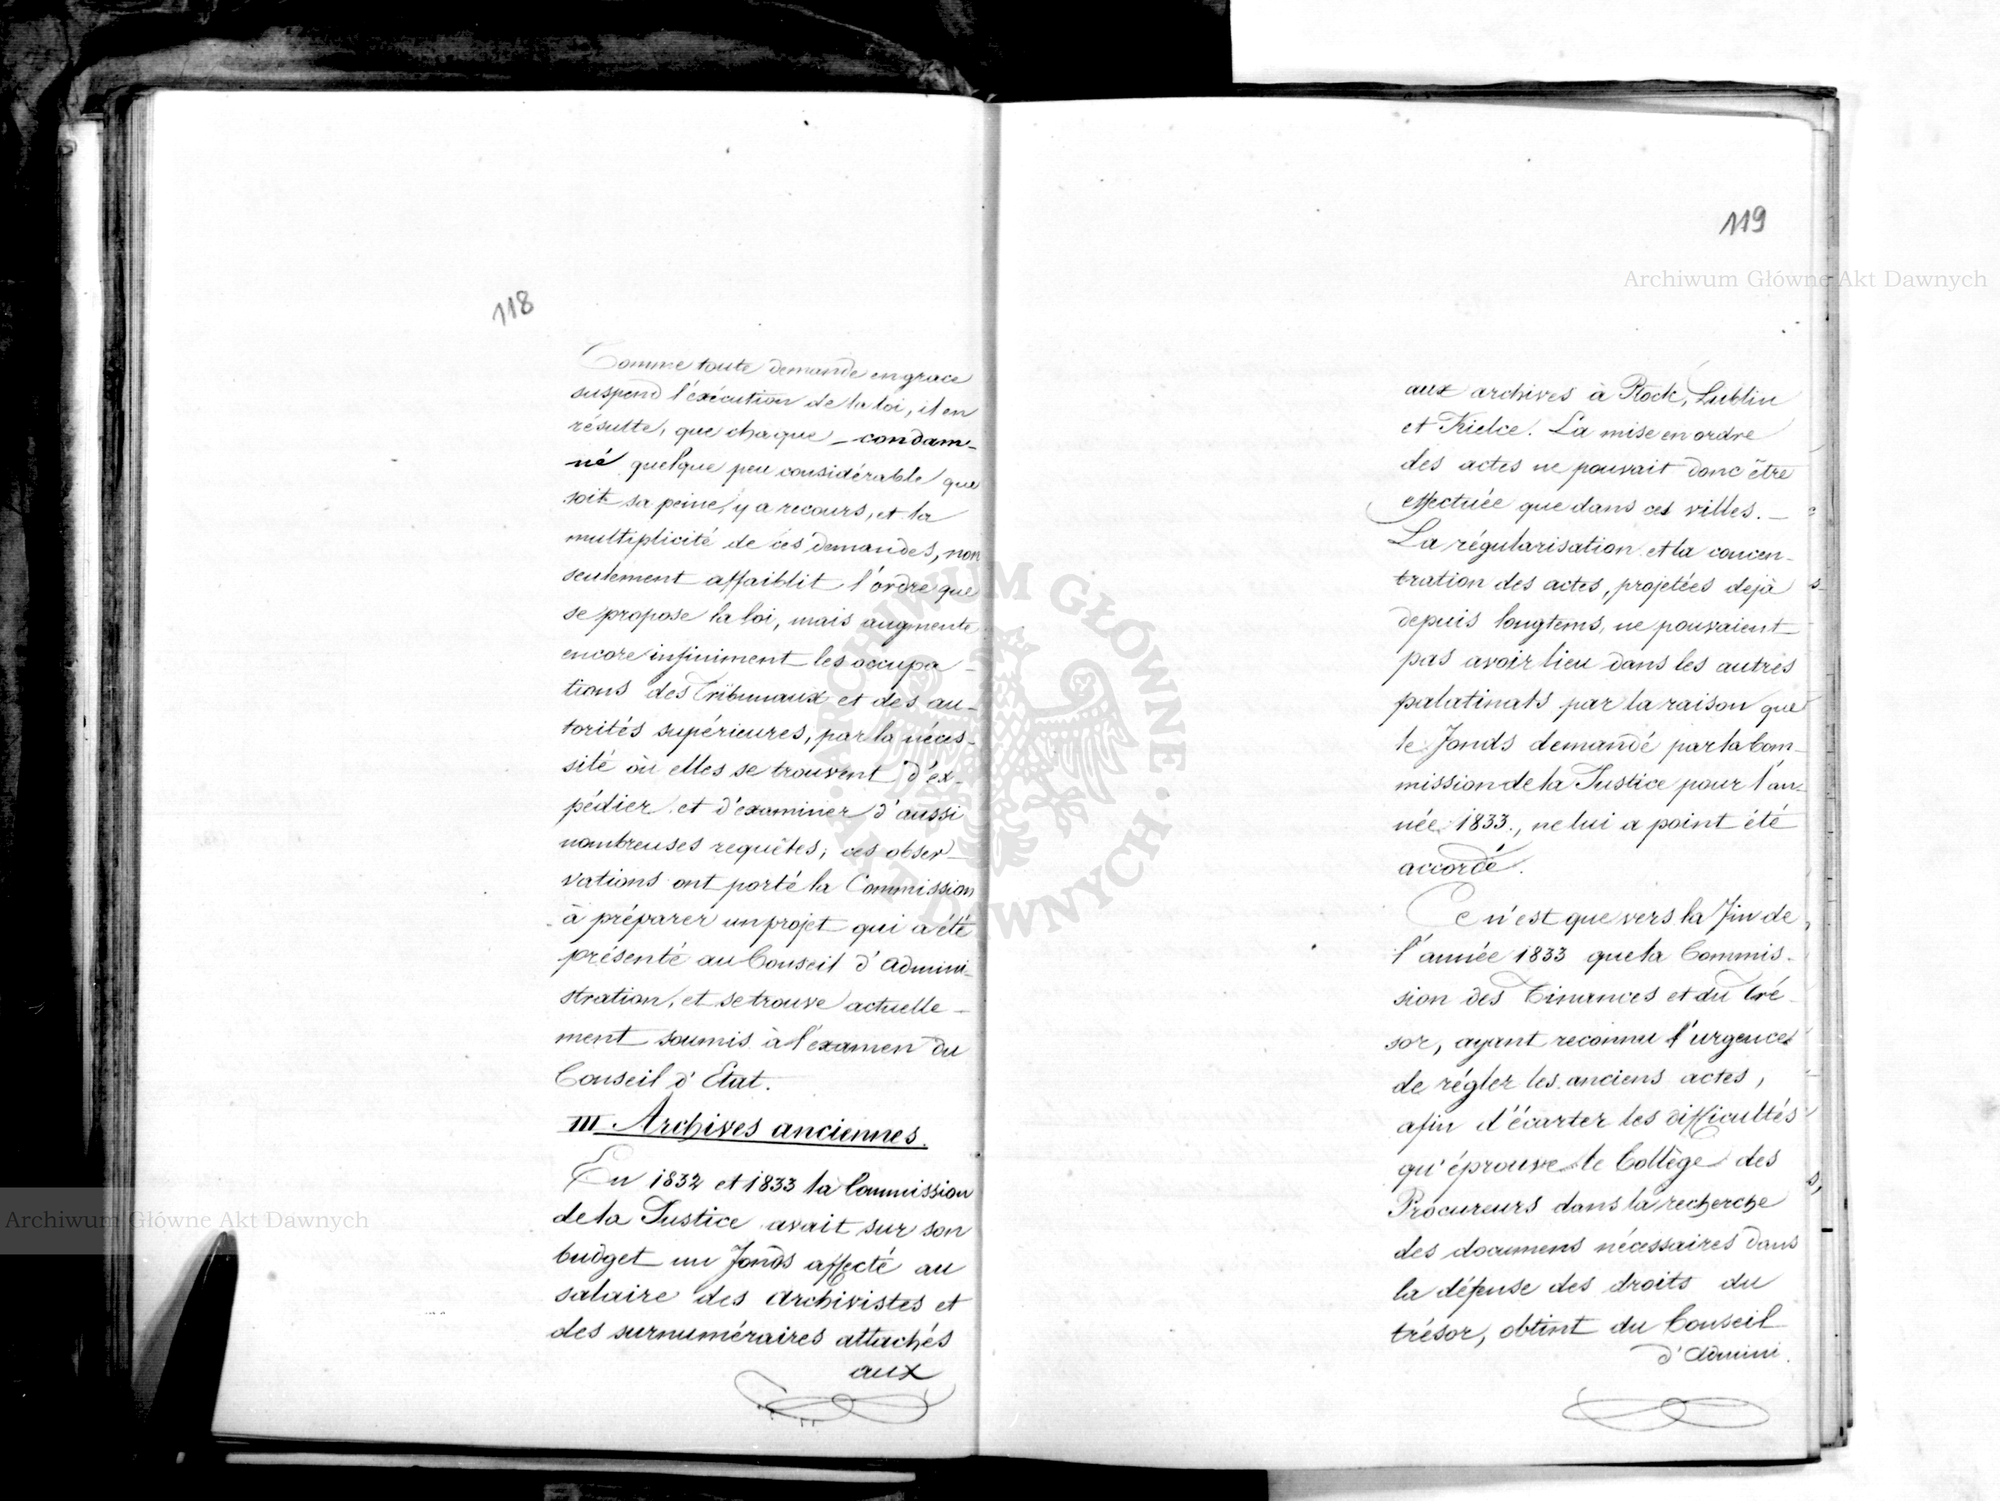 118
Comme toute demande en grace
suspend l'éxécution de la loi, il en
résulte, que chaque condam-
né quelque peu considérable que
soit sa peine, y a recours, et la
multiplicité de ces demandes, non
seulement affaiblit l'ordre que
se propose la loi, mais augmente
encore infiniment les occupa-
tions des Tribunaux et des au-
torités supérieures, par la néces-
sité où elles se trouvent d'ex-
pédier et d'examiner d'aussi
nombreuses requêtes; ces obser-
vations ont porté la Commission
à préparer un projet qui a été
présenté au Conseil d'Admini-
stration, et se trouve actuelle-
ment soumis à l'examen du
Conseil d'Etat.
III. Archives anciennes.
En 1832 et 1833 la Commission
de la Justice avait sur son
budget un fonds affecté au
salaire des archivistes et
des surnuméraires attachés
aux
119
aux archives à Płock, Lublin
et Kielce. La mise en ordre
des actes ne pouvait donc être
effectuée que dans ces villes. —
La régularisation et la concen-
tration des actes, projetées dejà
depuis longtems, ne pouvaient
pas avoir lieu dans les autres
palatinats par la raison que
le fonds demandé par la Com-
mission de la Justice pour l'an-
née 1833., ne lui a point été
accordé.
Ce n'est que vers la fin de
l'année 1833 que la Commis-
sion des Finances et du Tré-
sor, ayant reconnu l'urgence
de régler les anciens actes,
afin d'écarter les difficultés
qu'éprouve le Collège des
Procureurs dans la recherche
des documens nécessaires dans
la défense des droits du
trésor, obtint du Conseil
d'Admini.
Archiwum Główne Akt Dawnych
Archiwum Główne Akt Dawnych
ARCHIWUM GŁÓWNE · AKT DAWNYCH ·